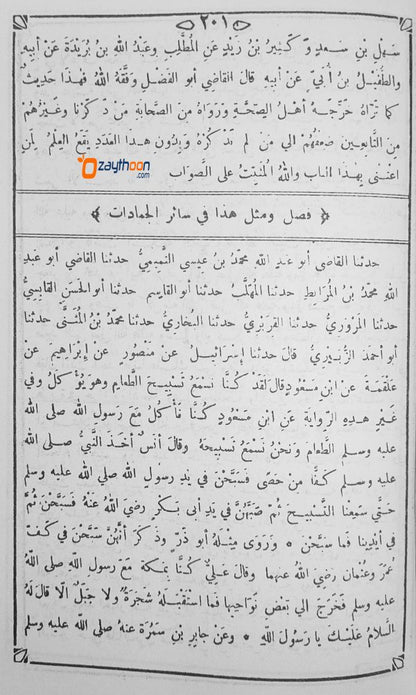 ﴿ ٢٠١ ﴾
سَهْلِ بْنِ سَعِدٍ وَ كَثِيرُ بْنُ زَيْدٍ عَنِ المُطَّلِبِ وَعَبْدُ اللّٰهِ بْنُ بُرَيْدَةَ عَنْ أَبِيهِ
وَالطُّفَيْلُ بنُ أُبَيّ عَنْ أَبِيهِ قالَ القاضي أبو الفَضْلِ وَفَّقَهُ اللهُ فَهذا حَدِيثٌ
كما تَرَاهُ خَرَّجَهُ أَهْلُ الصِّحَّةِ وَرَوَاهُ مِنَ الصَّحابَةِ مَنْ ذَكَرْنا وَغَيْرُهُمْ
مِنَ التَّابِعِينَ ضِعْفُهُمْ الى مَنْ لم نَذْكُرْهُ وَبِدُونِ هذا العَدَدِ يَقَعُ العِلْمُ لِمَنِ
اعْتَنَى بِهذا الباب واللهُ المُثَبِّتُ على الصَّوَابِ
Ozaythoon
.com
﴿ فصل ومثل هذا في سائر الجمادات ﴾
حدثنا القاضى أبو عَبدِ اللهِ محمّدُ بنُ عيسى التَّمِيمِيُّ حدثنا القاضِى أبو عَبدِ
اللهِ محمّدُ بنُ المُرَابِطِ حدثنا المُهَلَّبُ حدثنا أبو القاسِمِ حدثنا أبو الحَسَنِ القابِسِيُّ
حدثنا المَرْوَزِيُّ حدثنا الفَرَبْرِيُّ حدثنا البُخارِيُّ حدثنا محمّدُ بْنُ المُثَنَّى حدثنا
أبو أحمَدَ الزُّبَيْرِيُّ قالَ حدثنا إِسْرَائِيلُ عَنْ مَنْصُورٍ عَنْ إِبْرَاهِيمَ عَنْ
عَلْقَمَةَ عَنْ ابْنِ مَسْعُودٍ قالَ لَقَدْ كُنَّا نَسْمَعُ تَسْبِيحَ الطَّعامِ وهو يُؤْكَلُ وفي
غَيْرِ هذِهِ الرِّوايَةِ عَنِ ابْنِ مَسْعُودٍ كُنَّا نَأْكُلُ مَعَ رَسُولِ اللهِ صلى الله
عليه وسلم الطَّعامَ وَنَحْنُ نَسْمَعُ تَسْبِيحَهُ وقالَ أَنَسٌ أَخَذَ النَّبيُّ صلى الله
عليه وسلم كَفًّا مِنْ حَصًى فَسَبَّحْنَ في يَدِ رسولِ اللهِ صلى الله عليه وسلم
حَتَّى سَمِعْنا التَّسْبِيحَ ثُمَّ صَبَّهُنَّ في يَدِ أبى بَكْرٍ رضى اللهُ عَنْهُ فَسَبَّحْنَ ثُمَّ
في أَيْدِينا فما سَبَّحْنَ * وَرَوَى مِثْلَهُ أبو ذَرٍّ وَذَكَرَ أَنَّهُنَّ سَبَّحْنَ في كَفِّ
عُمَرَ وَعُثْمانَ رضي الله عنهما وقالَ عَلِيٌّ كُنَّا بِمَكَّةَ مَعَ رَسولِ اللهِ صلى اللهُ
عليه وسلم فَخَرَجَ الى بَعْضِ نَوَاحِيها فَما اسْتَقْبَلَهُ شَجَرَةٌ وَلا جَبَلٌ الَّا قالَ لَهُ
السَّلامُ عَلَيْكَ يا رَسُولَ اللهِ * وَعَنْ جابِرِ بْنِ سَمُرَةَ عنهُ صلى الله عليه وسلم